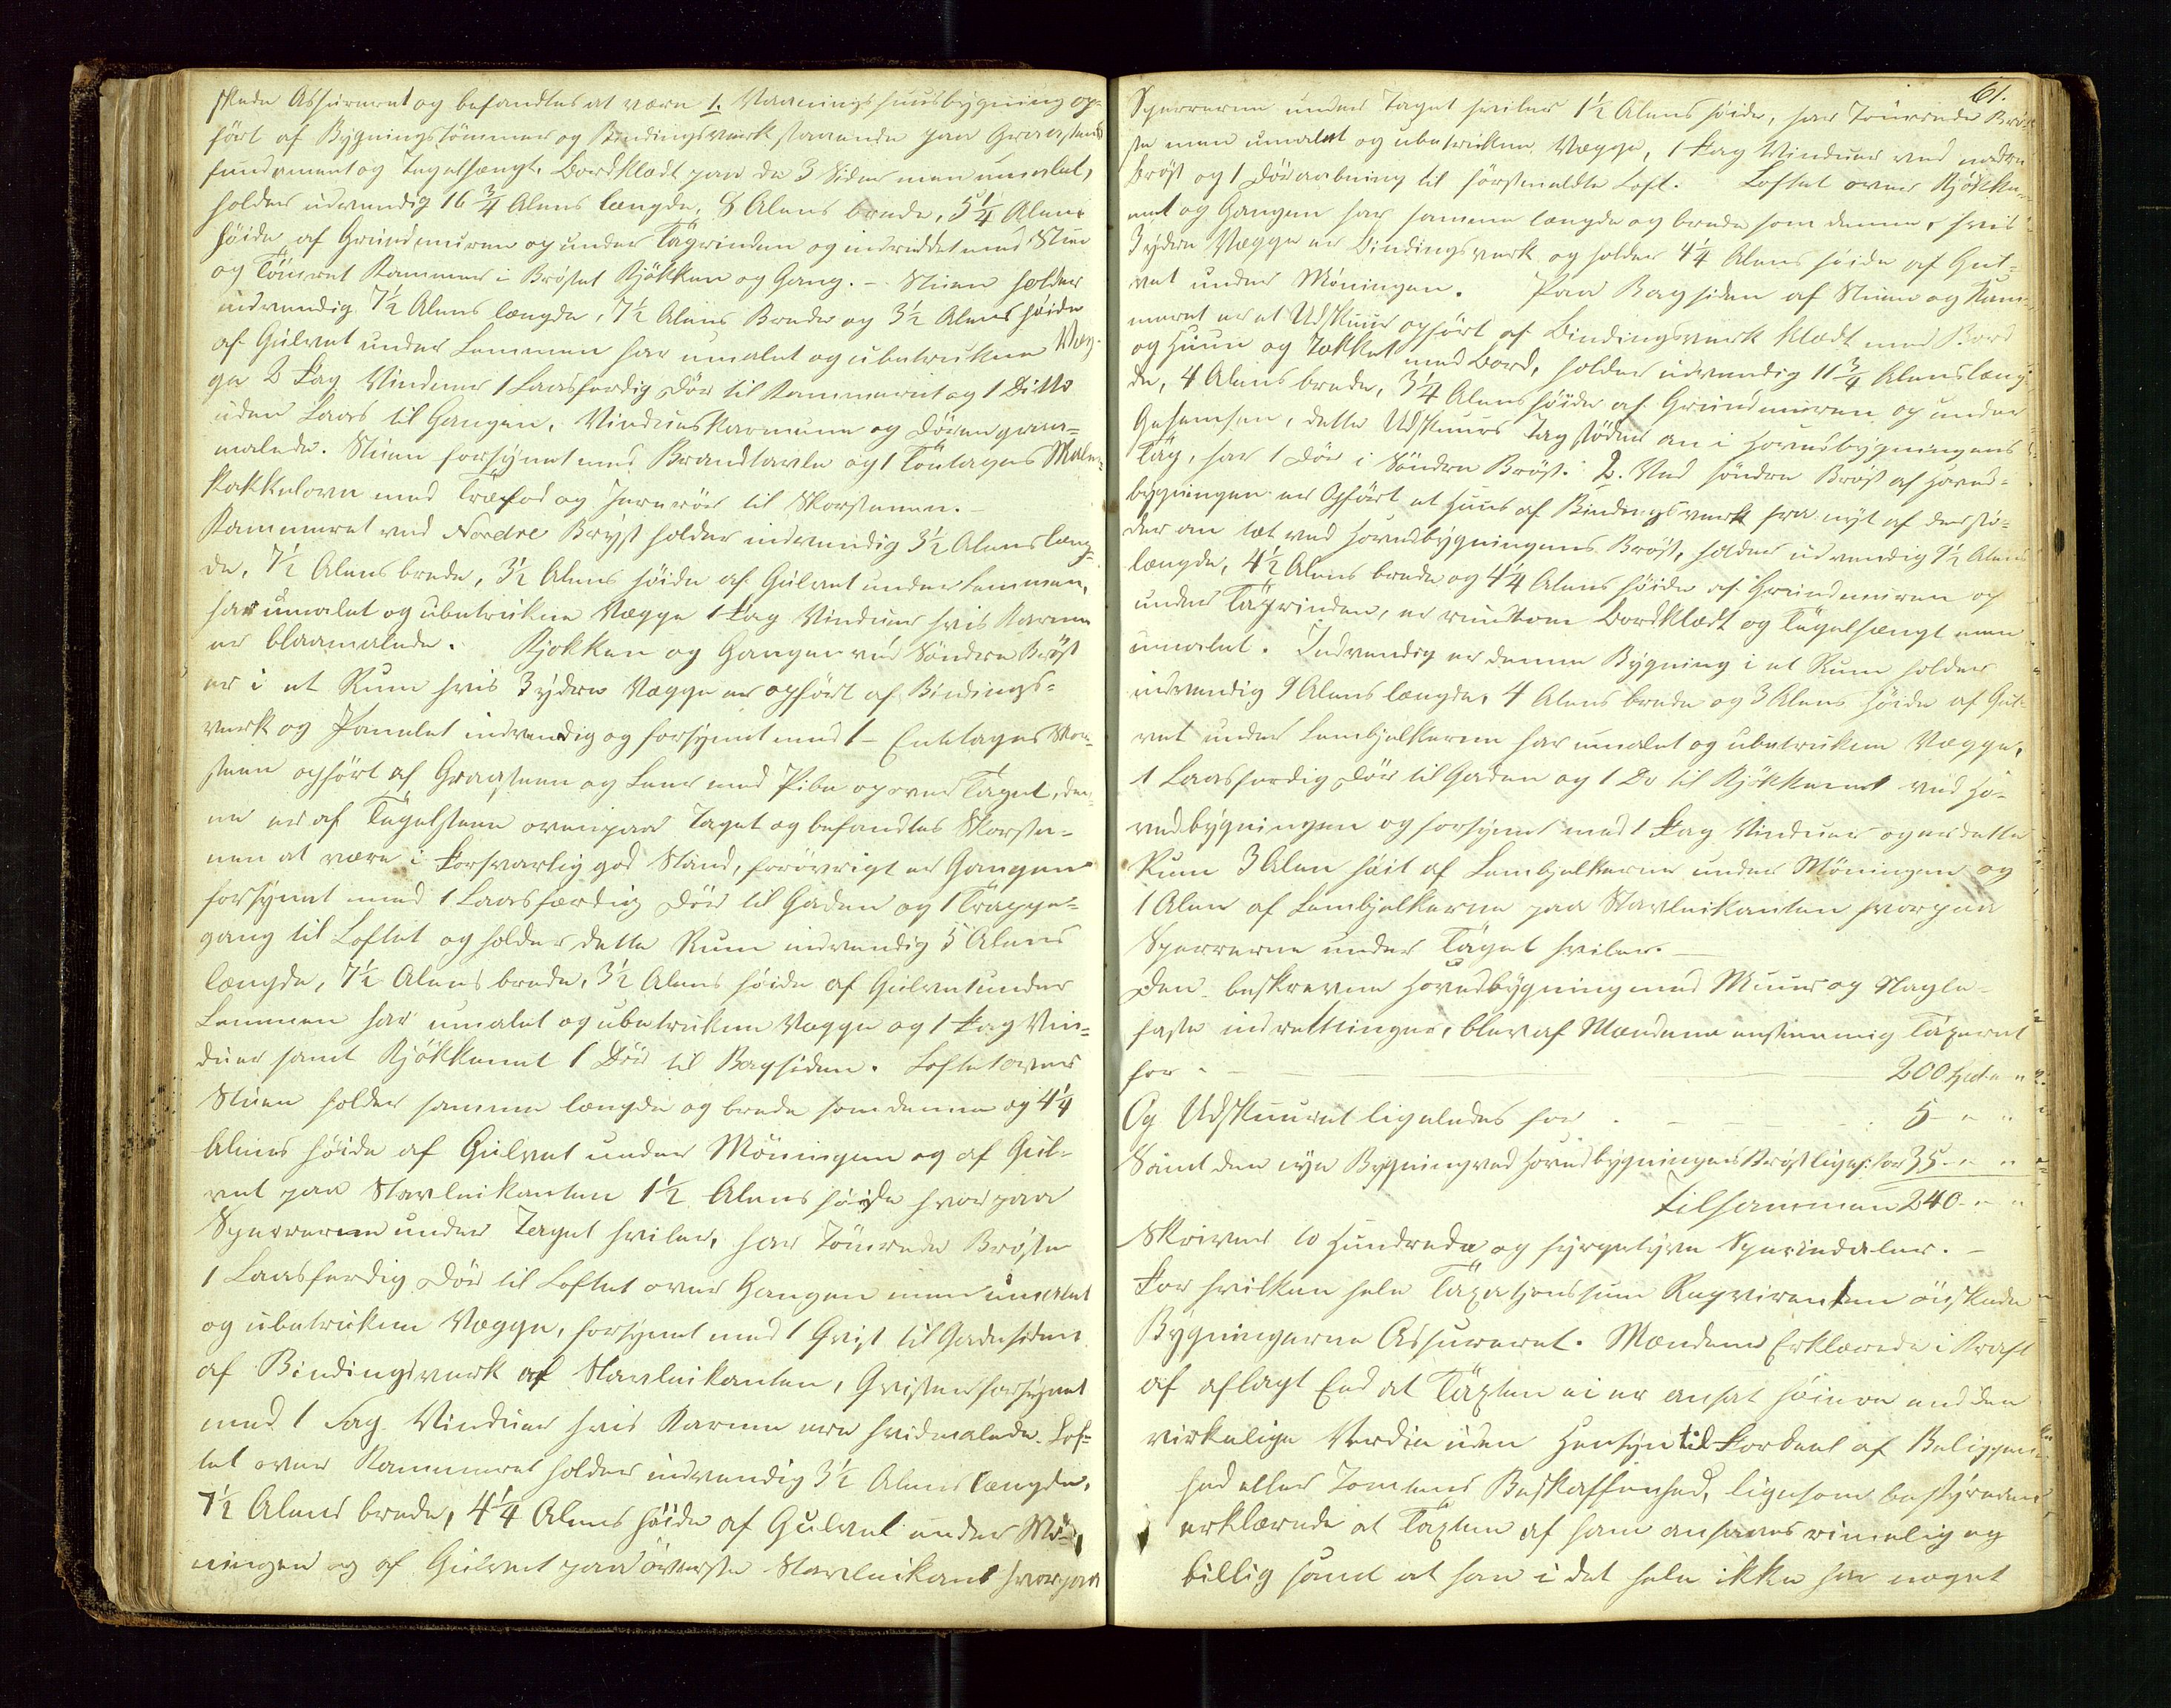 skede Assureret og befandtes at være 1. Vaaningshuusbygning op-
ført af Bygningstømmer og Bindingsverk staaende paa Graasteens
fundament og Tegelhængt. Bordklædt paa de 3 Sider men umalet,
holder udvendig 16 3/4 Alens længde, 8 Alens brede, 5 1/4 Alens
høide af Grundmuren op under Tagrinden og indreddet med Stue
og Tømret Kammer i Brøstet Kjøkken og Gang. – Stuen holder
indvendig 7 1/2 Alens længde, 7 1/2 Alens Brede og 3 1/2 Alens høide
af Gulvet under Lemmen har umalet og ubetrukne Væg-
ge 2 Fag Vinduer 1 Laasferdig Dør til Kammeret og 1 Ditto
uden Laas til Gangen, Vindueskarmene og Dören graa-
malede. Stuen forsynet med Brandtavle og 1 Toetages Male-
kakkelovn med Træfod og Jernrör til Skorstenen. –
Kammeret ved Nordre Bryst holder indvendig 3 1/2 Alens læng-
de, 7 1/2 Alens brede, 3 1/2 Alens høide af Gulvet under Lemmen,
har umalet og ubetrukne Vægge 1 Fag Vinduer hvis Karme
er blaamalede. Kjøkken og Gangen ved Söndre Bröst
er i et Rum hvis 3 ydre Vægge er opført af Bindings-
verk og Panelet indvendig og forsynet med 1 Enetages Skor-
steen opført af Graasteen og Leer med Pibe op over Taget, den-
ne er af Tegelsteen ovenpaa Taget og befandtes Skorste-
nen at være i forsvarlig god Stand, forövrigt er Gangen
forsynet med 1 Laasfærdig Dör til Gaden og 1 Trappe-
gang til Loftet og holder dette Rum indvendig 5 Alens
længde, 7 1/2 Alens brede, 3 1/2 Alens høide af Gulvet under
Lemmen har umalet og ubetrukne Vægge og 1 Fag Vin-
duer samt Kjøkkenet 1 Dör til Bagsiden. Loftet over
Stuen holder samme længde og brede som denne og 4 1/4
Alens høide af Gulvet under Möningen og af Gul-
vet paa Stavleikanten 1 1/2 Alens høide hvorpaa
Sperrerne under Taget hviler, har Tömrede Bröste
1 Laasferdig Dör til Loftet over Gangen men umalet
og ubetrukne Vægge, forsynet med 1 Qvist til Gadesiden
af Bindingsverk af Stavleikanten, Qvisten forsynet
med 1 Fag Vinduer hvis Karme ere hvidmalede. Lof-
tet over Kammeret holder indvendig 3 1/2 Alens længde,
7 1/2 Alens brede, 4 1/4 Alens høide af Gulvet under Mö-
ningen og af Gulvet paa överste Stavleikant hvorpaa
61.
Sperrerne under Taget hviler 1 1/2 Alens høide, har Tömrede Brö-
ste men umalet og ubetrukne Vægge, 1 Fag Vinduer ved nordre
Bröst og 1 Döraabning til førstmeldte Loft. Loftet over Kjøkke-
net og Gangen har samme længde og brede som denne, hvis
3 ydre Vægge er Bindingsverk og holder 4 1/4 Alens høide af Gul-
vet under Möningen. Paa Bagsiden af Stuen og Kam-
meret er et Udskuur opført af Bindingsverk klædt med Bord
og Huun og Tækket med Bord, holder udvendig 11 3/4 Alens læng-
de, 4 Alens brede, 3 1/4 Alens høide af Grundmuren op under
Gesemsen, dette Udskuurs Tag støder an i Hovedbygningens
Tag, har 1 Dör i Söndre Bröst. 2. Ved søndre Bröst af Hoved-
bygningen er Opført et Huus af Bindingsverk fra nyt af der stö-
der an tæt ved Hovedbygningens Bröst, holder udvendig 9 1/2 Alens
længde, 4 1/2 Alens brede og 4 1/4 Alens høide af Grundmuren op
under Tagrinden, er rundtom Bordklædt og Tegelhængt men
umalet. Indvendig er denne Bygning i et Rum holder
indvendig 9 Alens længde, 4 Alens brede og 3 Alens høide af Gul-
vet under Lembjelkerne har umalet og ubetrukne Vægge,
1 Laasferdig Dör til Gaden og 1 Do til Kjøkkenet ved Ho-
vedbygningen og forsynet med 1 Fag Vinduer og er dette
Rum 3 Alen høit af Lembjelkerne under Möningen og
1 Alen af Lembjelkerne paa Stavleikanten hvorpaa
Sperrerne under Taget hviler. –
Den beskrevne Hovedbygning med Muur og Nagle-
faste indrettninger, blev af Mændene enstemmig Taxeret
for - - - 200 Spd " "
Og Udskuuret ligeledes for - - - 5 - " "
Samt den nye Bygning ved Hovedbygningens Bröst liges: for 35 - " "
Tilsammen 240 - " "
Skriver to Hundrede og fyrgetyve Speciedaler. –
For hvilken hele Taxationssum Reqvirenten önskede
Bygningerne Assureret. Mændene Erklærede i Kraft
af aflagt Eed at Taxten ei er ansat höiere end den
virkelige Verdie uden Hensyn til Fordeel af Beliggen-
hed eller Tomtens Beskaffenhed, ligesom bestyreren
erklærede at Taxten af ham ansaaes rimelig og
billig samt at han i det hele ikke har noget